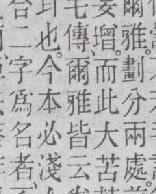 爾雅。劃分兩處
妄增。而此大苦
毛傳爾雅皆云
也。今本必淺人
二字爲名者